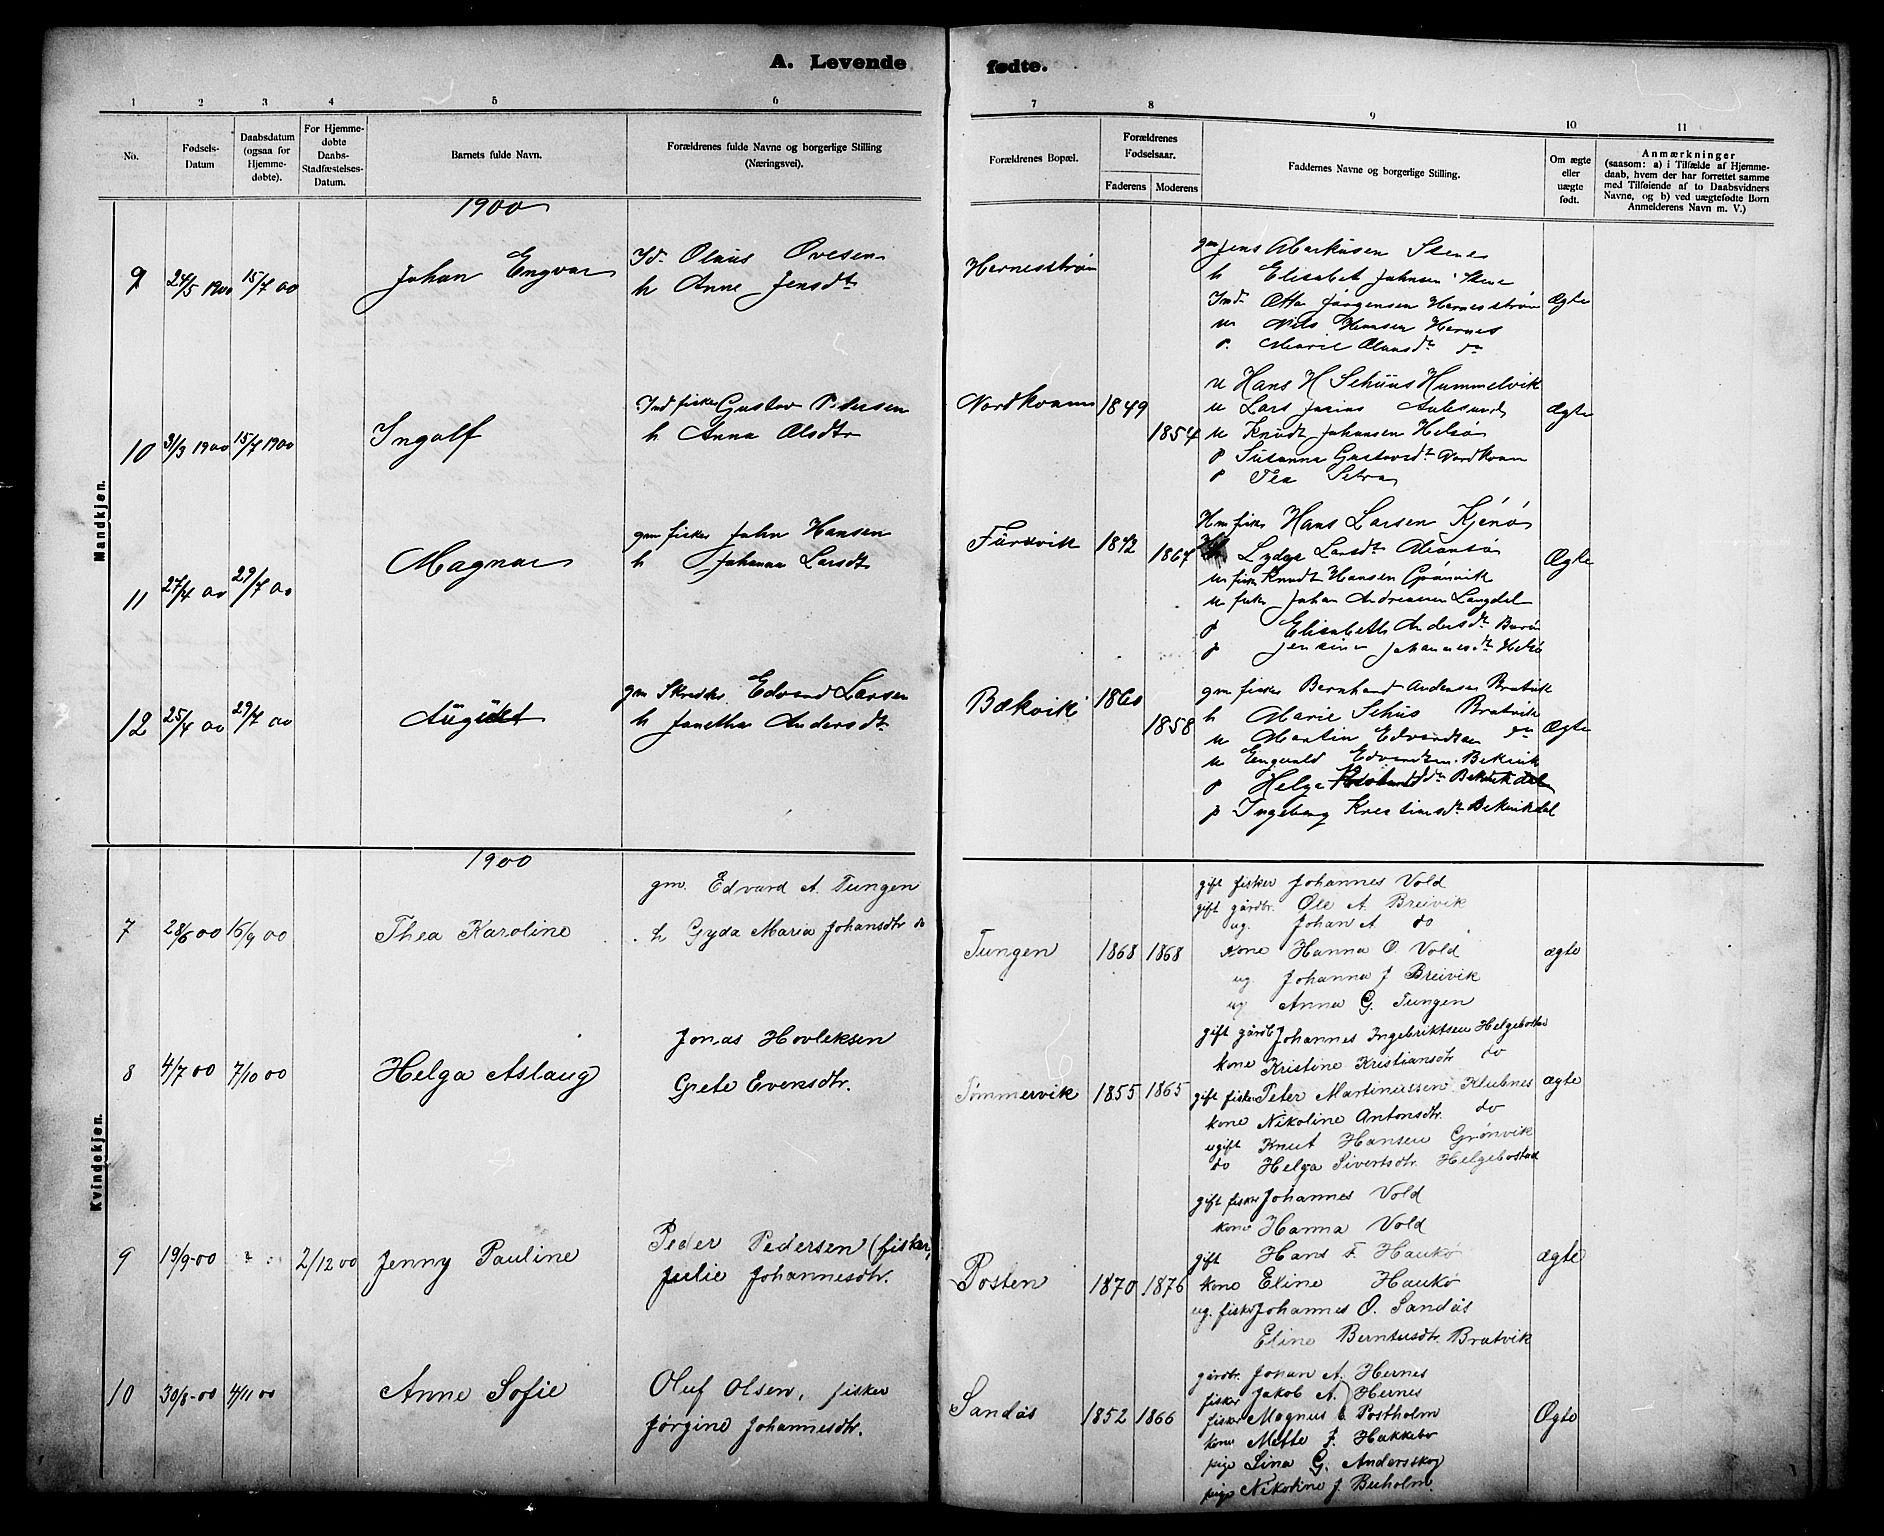 A. Levende fødte.
1 2 3 4 5 6 7 8 9 10 11
No.
Fødsels-
Datum
Daabsdatum
(ogsaa for
Hjemme-
døbte).
For Hjemme-
døbte
Daabs-
Stadfæstelses-
Datum.
Barnets fulde Navn.
Forældrenes fulde Navne og borgerlige Stilling
(Næringsvei).
Forældrenes Bopæl.
Forældrenes
Fødselsaar.
Faderens
Moderens
Faddernes Navne og borgerlige Stilling.
Om ægte
eller
uægte
født.
Anmærkninger
(saasom: a) i Tilfælde af Hjemme-
daab, hvem der har forrettet samme
med Tilføiende af to Daabsvidners
Navne, og b) ved uægtefødte Børn
Anmelderens Navn m. V.)
Mandkjøn.
1900
9 24/5 1900 15/7 00 Johan Engvar
Olaus Ovesen
h Anne Jensdt
Hernesstrøm
gm Jens Markusen Stene
h Elisabet Johnsen Stene
Ind. Otto Jørgensen Hernesstrøm
u Nils Hansen Hernes
p. Marie Olausdt do
Ægte
10 31/3 1900 15/7 1900 Ingolf
Ind fisker Gustav Pedersen
h Anna Olsdtr
Nordkvam 1849 1854
u Hans H Schiius Hummelvik
u Lars Aalesund
u Knudt Johansen Helsø
p Susanna Gustavsdt Nordkvam
p Tea Setra
Ægte
11 27/4 00 29/7 00 Magnar
gm fisker John Hansen
h Johanna Larsdt
Furevik 1842 1864
Hm fisker Hans Larsen Kjenø
Lydge Larsdt
u fisker Knudt Hansen Grønvik
u fisker Johan Andreasen Langdal
p Elisabeth Andersdt
p Jensine Johannesdt Helsø
Ægte
12 25/4 00 29/7 00 August
gm Edvard Larsen
h Janetha Andersdt
Bækvik 1860 1858
gm fisker Bernhard Andersen Bratvik
h Marie Schus Bratvik
u Martin Edvardsen do
u Engvald Edvardsen Bekvik
p Helga Bekvikdal
p Ingeborg Kristiansdt Bekvikdal
Ægte
Kvindekjøn.
1900
7 28/6 00 16/9 00 Thea Karoline
gm. Edvard A. Tungen
h Gyda Maria Johansdtr do
Tungen 1868 1868
gift fisker Johannes Vold
gift gårdbr. Ole A. Breivik
ug. Johan A do
kone Hanna O. Vold
ug. Johanna J Breivik
ug Anna G. Tungen
ægte
8 4/7 00 7/10 00 Helga Aslaug
Jonas Hovleksen
Grete Evensdtr.
Tømmervik 1855 1865
gift gårdb Johannes Ingebriktsen Helgebostad
kone Kristine Kristiansdtr do
gift fisker Peter Martinussen Klubnes
kone Nikoline Antonsdtr. do
ugift Knut Hansen Grønvik
do Helga Sivertsdtr. Helgebostad
ægte
9 19/9-00 2/12 00 Jenny Pauline
Peder Pedersen (fisker)
Julie Johannesdtr.
Posten 1870 1876
gift fisker Johannes Vold
kone Hanna Vold
gift Hans F. Haukø
kone Eline Haukø
ug. fisker Johannes O. Sandås
Eline Berntusdtr. Bratvik
ægte
10 30/8-00 4/11 00 Anne Sofie
Oluf Olsen, fisker
Jørgine Johannesdtr.
Sandås 1852 1866
gårdbr. Johan A. Hernes
fisker Jakob A. Hernes
fisker Magnus Postholm
kone Mette J. Hakkebo
pige Lina G. Andersskog
pige Nikoline J. Buholm.
Ægte